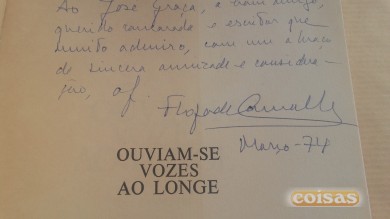 Ao José Graça, o bom amigo,
querido camarada e escritor que
muito admiro, com um abraço
de sincera amizade e conside-
ração, af.
Março-74
OUVIAM-SE
VOZES
AO LONGE
coisas